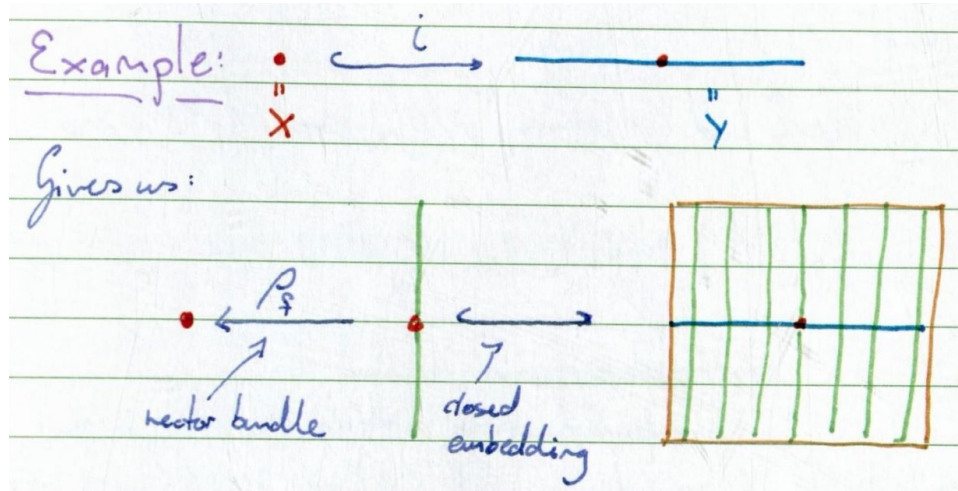 Example: i
" "
X Y
Gives us:
ρ
vector bundle closed
embedding